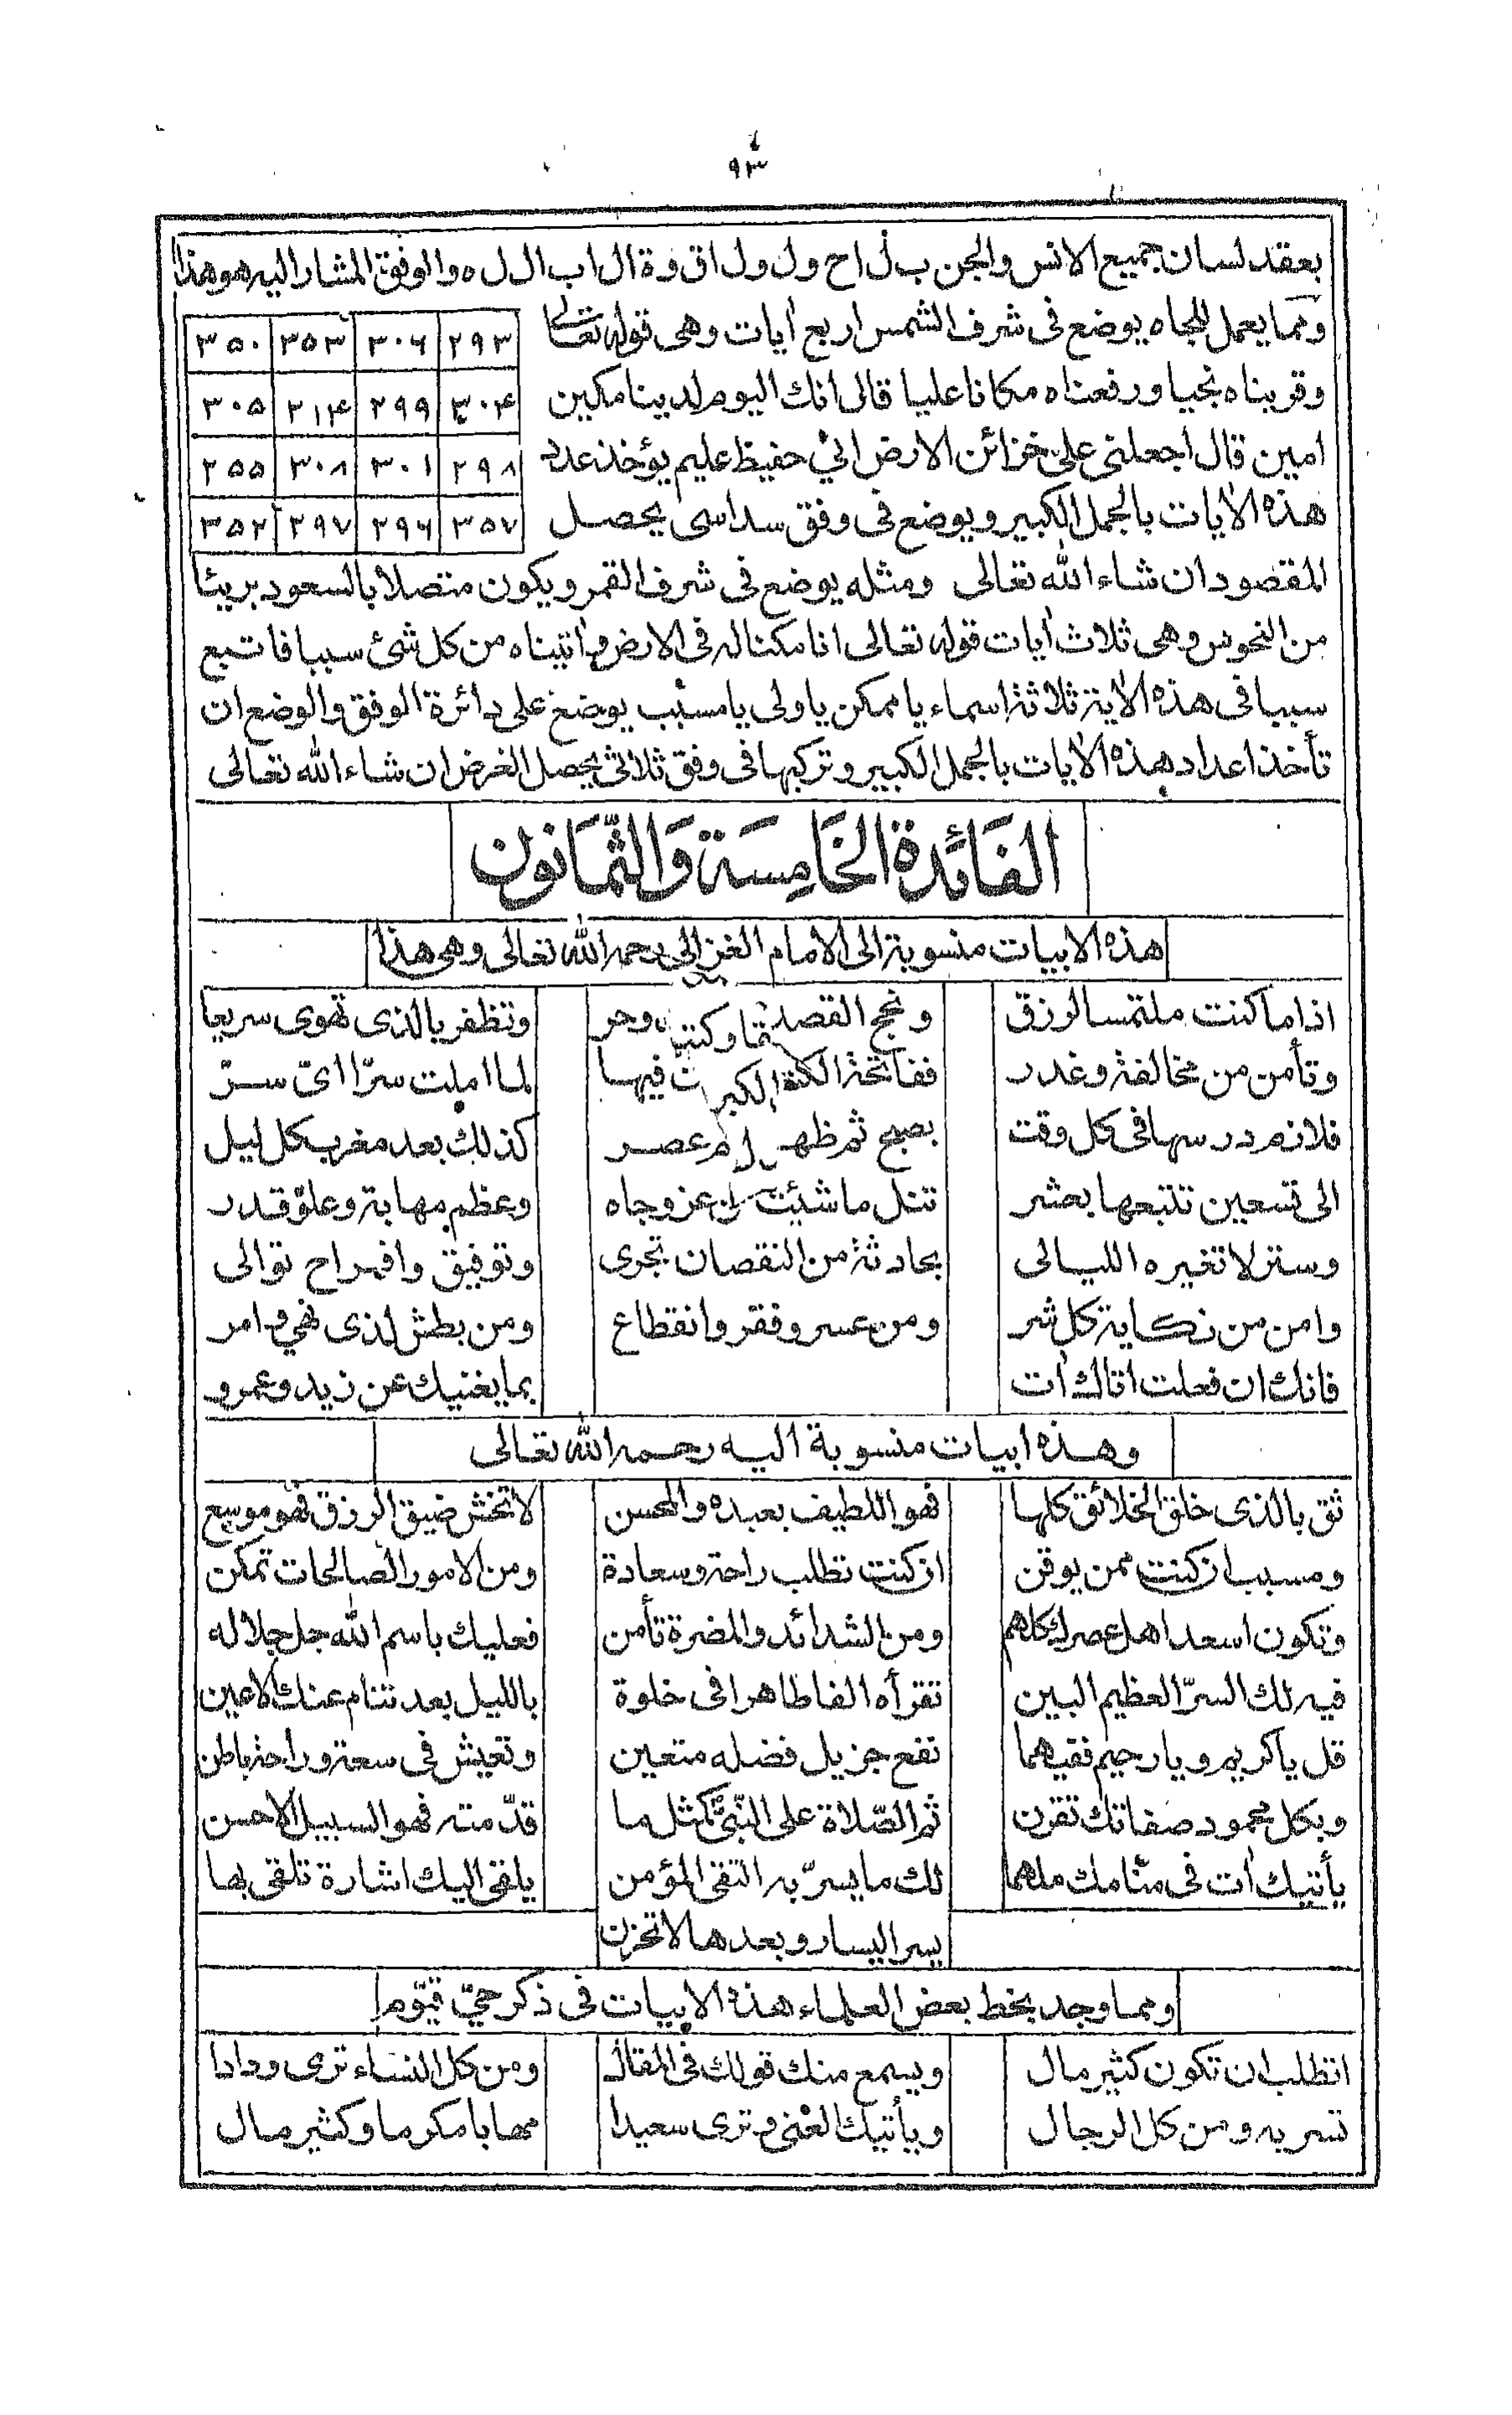 ٩٣
بعقد لسان جميع الانس والجن ب ل اح ول ول اق وة ال اب ال ل ه والوفق المشار اليه هو هذا
ومما يعمل للجاه يوضع فى شرف الشمس اربع أيات وهى قوله تعالى
وقربناه نجيا ورفعناه مكانا عليا قال انك اليوم لدينا مكين
امين قال اجعلنى على خزائن الارض انى حفيظ عليم يؤخذ عدد
هذه الأيات بالجمل الكبير ويوضع فى وفق سداسى يحصل
٢٩٣ ٣٠٦ ٣٥٣ ٣٥٠
٣٠۴ ٢٩٩ ٢١۴ ٣٠٥
٢٩٨ ٣٠١ ٣٠٨ ٢٥٥
٣٥٧ ٢٩٦ ٢٩٧ ٣٥٢
المقصود ان شاء الله تعالى ومثله يوضع فى شرف القمر ويكون متصلا بالسعود بريئا
من النحوس وهى ثلاث أيات قوله تعالى انا مكنا له فى الارض وأتيناه من كل شئ سببا فاتبع
سببا فى هذه الأية ثلاثة اسماء يا ممكن يا ولى يا مسبب يوضع على دائرة الوفق والوضع ان
تأخذ اعداد هذه الأيات بالجمل الكبير وتركبها فى وفق ثلاثى يحصل الغرض ان شاء الله تعالى
الفَائدة الخَامِسَة وَالثَّمَانون
هذه الابيات منسوبة الى الامام الغزالى رحمه الله تعالى وهى هذا
اذا ما كنت ملتمسا لرزق ونجح القصد وحر وتظفر بالذى تهوى سريعا
وتأمن من مخالفة وغدر ففاتحة فيها لما املت سرّا اىّ سرّ
فلازم درسها فى كل وقت بصبح ثم ظهر عصر كذلك بعد مغرب كل ليل
الى تسعين تتبعها بعشر تنل ما شئت عز وجاه وعظم مهابة وعلوّ قدر
وستر لا تغيره الليالى بحادثة من النقصان تجرى وتوفيق وافراح توالى
وامن من نكاية كل شر ومن عسر وفقر وانقطاع ومن بطش لذى نهى وامر
فانك ان فعلت اتاك أت بما يغنيك عن زيد وعمرو
وهذه ابيات منسوبة اليه رحمه الله تعالى
ثق بالذى خلق الخلائق كلها فهو اللطيف بعبده والمحسن لا تخش ضيق الرزق فهو موسع
ومسبب ان كنت ممن يوقن ان كنت تطلب راحة وسعادة ومن الامور الصالحات تمكن
وتكون اسعد اهل عصرك كلهم ومن الشدائد والمضرة تأمن فعليك باسم الله جل جلاله
فيه لك السرّ العظيم البين تقرأه الفا طاهرا فى خلوة بالليل بعد تنام عنك الاعين
قل يا كريم ويا رحيم ففيهما نفع جزيل فضله متعين وتعيش فى سعة وراحة باطن
وبكل محمود صفاتك تقرن ثم الصّلاة على النّبىّ كمثل ما قدّمته فهو السبيل الاحسن
يأتيك أت فى منامك ملهما لك ما يسرّ به التقى المؤمن يلقى اليك اشارة تلقى بها
يسر اليسار وبعدها لا تحزن
ومما وجد بخط بعض العلماء هذه الابيات فى ذكر حىّ قيّوم
اتطلب ان تكون كثير مال ويسمع منك قولك فى المقال ومن كل النساء ترى ودادا
تسر به ومن كل الرجال ويأتيك الغنى وترى سعيدا مهابا مكرما وكثير مال